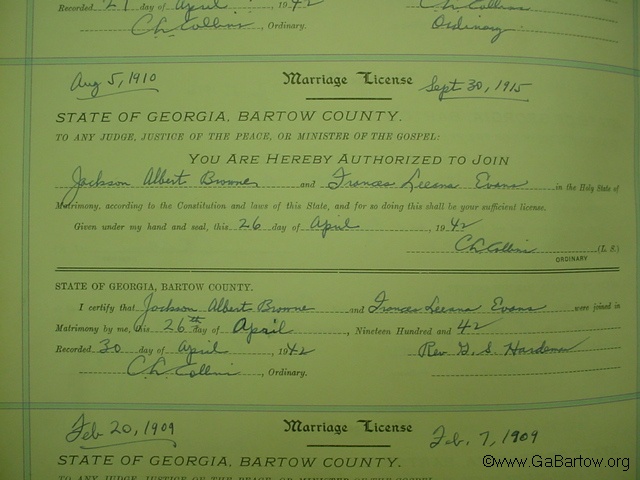 Recorded 21 day of April, 1942 Ch Collins
Ch. Collins, Ordinary. Ordinary
Aug 5, 1910 Marriage License Sept 30, 1915
STATE OF GEORGIA, BARTOW COUNTY.
TO ANY JUDGE, JUSTICE OF THE PEACE, OR MINISTER OF THE GOSPEL:
YOU ARE HEREBY AUTHORIZED TO JOIN
Jackson Albert Browne and Frances Leeana Evans in the Holy State of
Matrimony, according to the Constitution and laws of this State, and for so doing this shall be your sufficient license.
Given under my hand and seal, this 26 day of April, 1942
Ch Collins (L. S.)
ORDINARY
STATE OF GEORGIA, BARTOW COUNTY.
I certify that Jackson Albert Browne and Frances Leeana Evans were joined in
Matrimony by me, this 26th day of April, Nineteen Hundred and 42
Recorded 30 day of April 1942 Rev. G. S. Hardeman
Ch. Collins, Ordinary.
Feb 20, 1909 Marriage License Feb. 7, 1909
STATE OF GEORGIA, BARTOW COUNTY.
©www.GaBartow.org